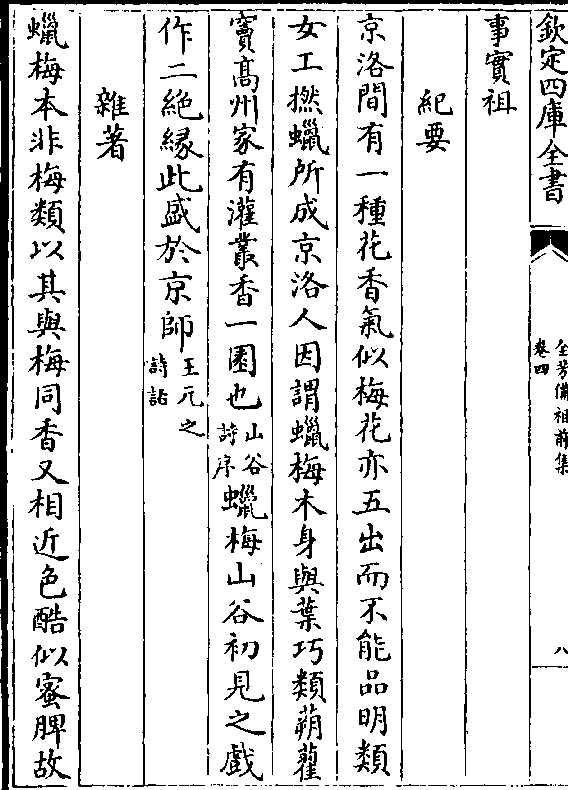 欽定四庫全書
全芳備祖前集
卷四
八
事實祖
紀要
京洛間有一種花香氣似梅花亦五出而不能品明類
女工撚蠟所成京洛人因謂蠟梅木身與葉巧類蒴藋
竇髙州家有灌叢香一園也山谷詩序蠟梅山谷初見之戲
作二絶緣此盛於京師王元之詩話
雜著
蠟梅本非梅類以其與梅同香又相近色酷似蜜脾故